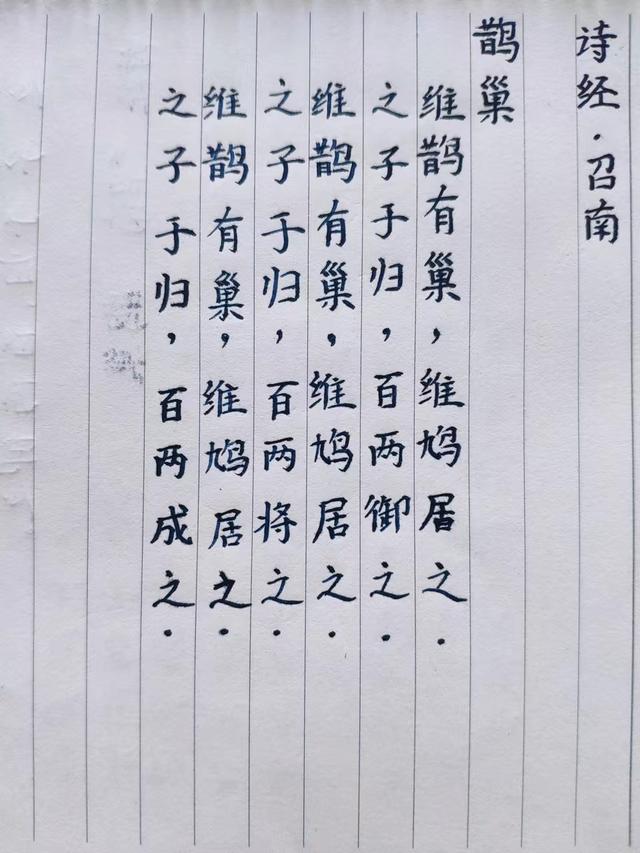 诗经·召南
鹊巢
维鹊有巢，维鸠居之.
之子于归，百两御之.
维鹊有巢，维鸠居之.
之子于归，百两将之.
维鹊有巢，维鸠居之.
之子于归，百两成之.